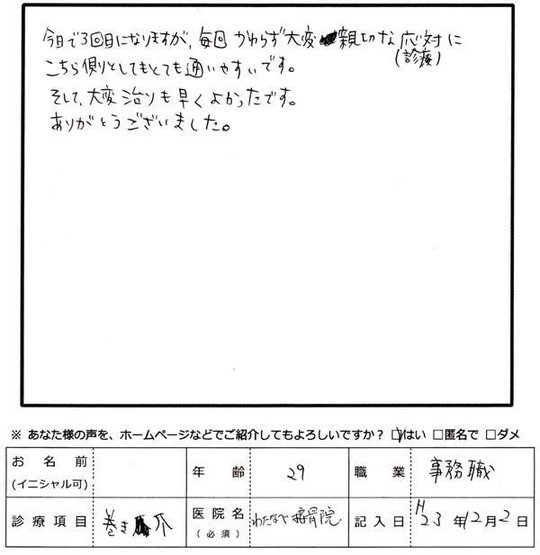 今日で3回目になりますが、毎回かわらず大変親切な応対に
(診療)
こちら側としてもとても通いやすいです。
そして、大変治りも早くよかったです。
ありがとうございました。
※ あなた様の声を、ホームページなどでご紹介してもよろしいですか？ ☑はい □匿名で □ダメ
お名前
(イニシャル可)
年齢 29 職業 事務職
診療項目 巻き爪 医院名
(必須)
わたなべ接骨院 記入日 H23年12月2日